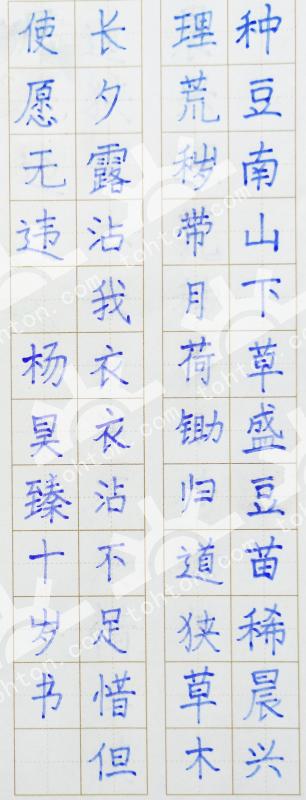 种豆南山下草盛豆苗稀晨兴
理荒秽带月荷锄归道狭草木
长夕露沾我衣衣沾不足惜但
使愿无违
杨昊臻十岁书
tohton.com